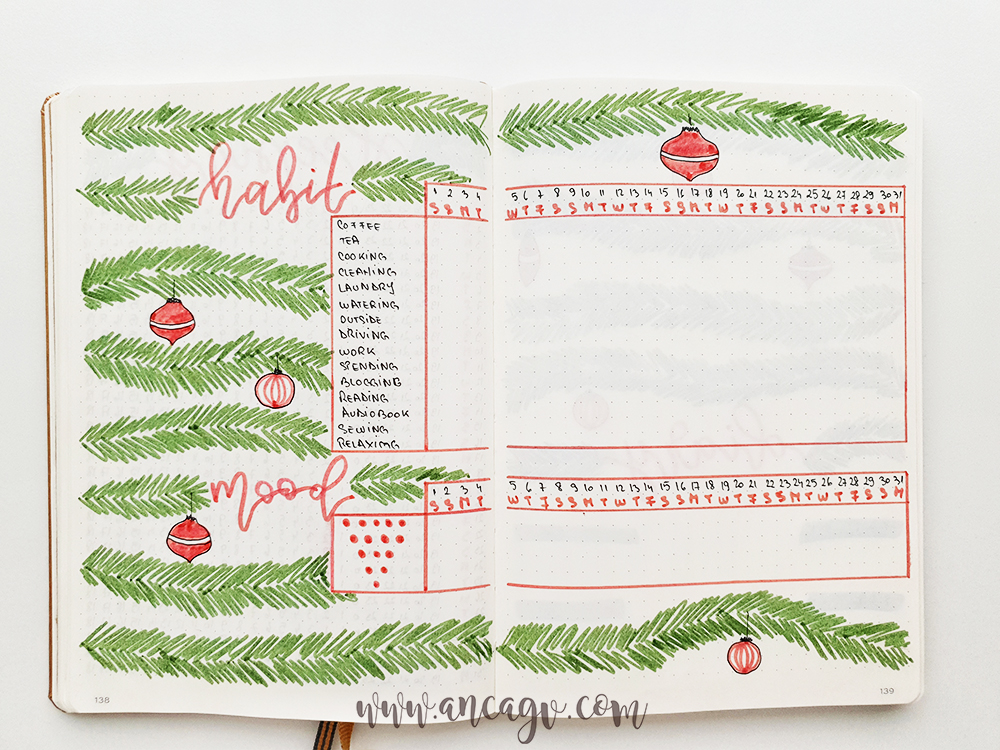 habit
1 2 3 4 5 6 7 8 9 10 11 12 13 14 15 16 17 18 19 20 21 22 23 24 25 26 27 28 29 30 31
S S M T W T F S S M T W T F S S M T W T F S S M T W T F S S M
COFFEE
TEA
COOKING
CLEANING
LAUNDRY
WATERING
OUTSIDE
DRIVING
WORK
SPENDING
BLOGGING
READING
AUDIOBOOK
SEWING
RELAXING
mood
1 2 3 4 5 6 7 8 9 10 11 12 13 14 15 16 17 18 19 20 21 22 23 24 25 26 27 28 29 30 31
S S M T W T F S S M T W T F S S M T W T F S S M T W T F S S M
138
139
www.ancagv.com